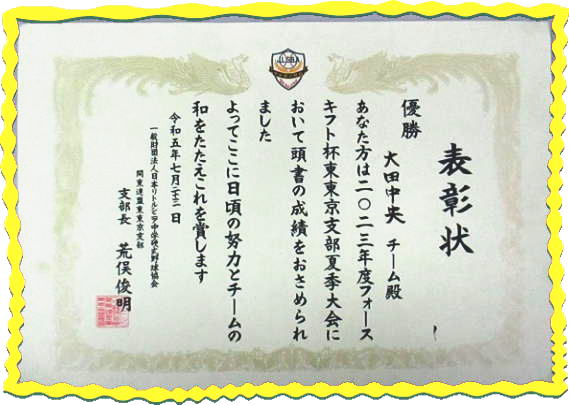 表彰状
優勝
大田中央 チーム殿
あなた方は二〇二三年度フォース
キフト杯東東京支部夏季大会に
おいて頭書の成績をおさめられ
ました
よってここに日頃の努力とチームの
和をたたえこれを賞します
令和五年七月二十二日
一般財団法人日本リトルシニア中学硬式野球協会
関東連盟東東京支部
支部長 荒俣俊明